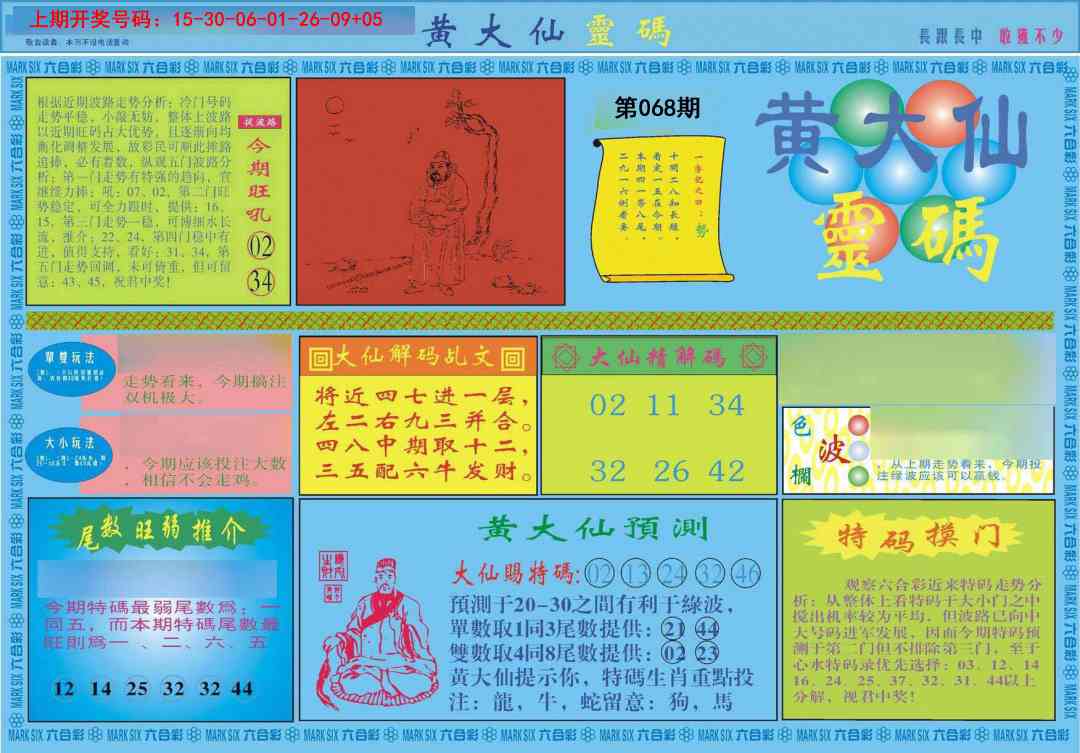 上期开奖号码：15-30-06-01-26-09+05
敬告读者：本刊不设电话查询
黄大仙靈碼
長跟長中 收獲不少
MARK SIX 六合彩
根据近期波路走势分析；冷门号码
走势平稳，小敲无妨，整体上波路
以近期旺码占大优势，且逐渐向均
衡化调整发展，故彩民可顺此摊路
追捧，必有着数，纵观五门波路分
析；第一门走势有特强的趋向，宜
继续力捧；吼：07、02，第二门旺
势稳定，可全力跟时，提供：16、
15，第三门走势一稳，可博细水长
流，推介；22、24，第四门稳中有
进，值得支持，看好；31、34，第
五门走势回调，未可倚重，但可留
意：43、45，祝君中奖！
今期旺吼
02
34
第068期
一季记之曰：势
十開二八知長短
看定一五在今期
本期四一零八尾
二九一六倒看妻
黄大仙
靈碼
單雙玩法
走势看来，今期搞注
双机极大。
大小玩法
，今期应该投注大数
，相信不会走鸡。
大仙解码乩文
将近四七进一层，
左二右九三并合。
四八中期取十二，
三五配六牛发财。
大仙精解碼
02 11 34
32 26 42
色波欄
，从上期走势看来，今期投
注绿波应该可以赢钱。
尾数旺弱推介
今期特碼最弱尾數爲：一
同五，而本期特碼尾數最
旺則爲一、二、六、五
12 14 25 32 32 44
黄大仙預測
大仙賜特碼:02 13 24 32 46
預測于20-30之間有利于綠波，
單數取1同3尾數提供：21 44
雙數取4同8尾數提供：02 23
黄大仙提示你，特碼生肖重點投
注：龍，牛，蛇留意：狗，馬
特码摸门
观察六合彩近来特码走势分
析；从整体上看特码干大小门之中
搅出机率较为平均，但波路已向中
大号码进军发展，因而今期特码预
测于第二门但不排除第三门，至于
心水特码录优先选择：03、12、14
16、24、25、37、32、31、44以上
分解，视君中奖！